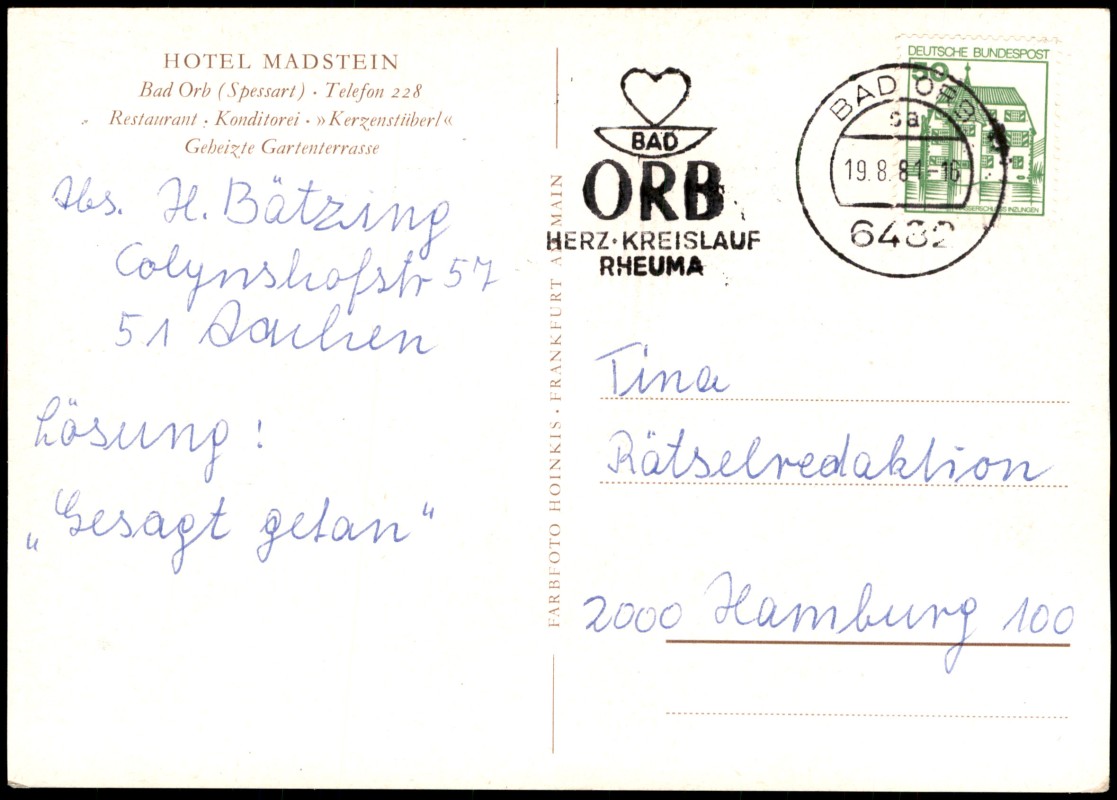 HOTEL MADSTEIN
Bad Orb (Spessart) · Telefon 228
Restaurant · Konditorei · »Kerzenstüberl«
Geheizte Gartenterrasse
Abs. H. Bätzing
Colynshofstr 57
51 Aachen
Lösung:
„Gesagt getan“
FARBFOTO HOINKIS · FRANKFURT AM MAIN
BAD
ORB
HERZ·KREISLAUF
RHEUMA
BAD ORB
19.8.81-16
6482
DEUTSCHE BUNDESPOST
50
WASSERSCHLOSS INZLINGEN
Tina
Rätselredaktion
2000 Hamburg 100